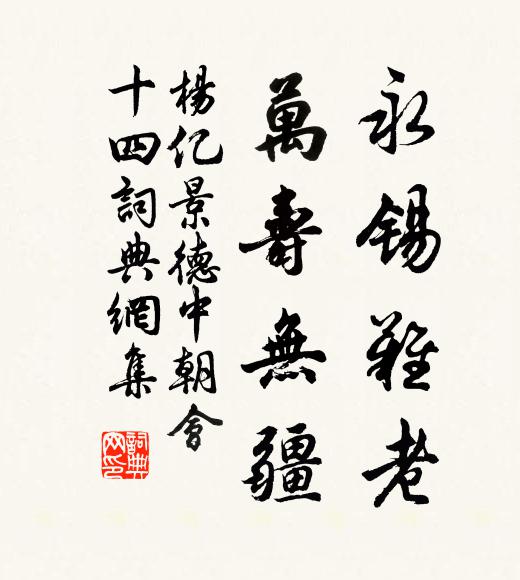 永錫難老
萬壽無疆
楊亿景德中朝會
十四詞典網集
詞典網印